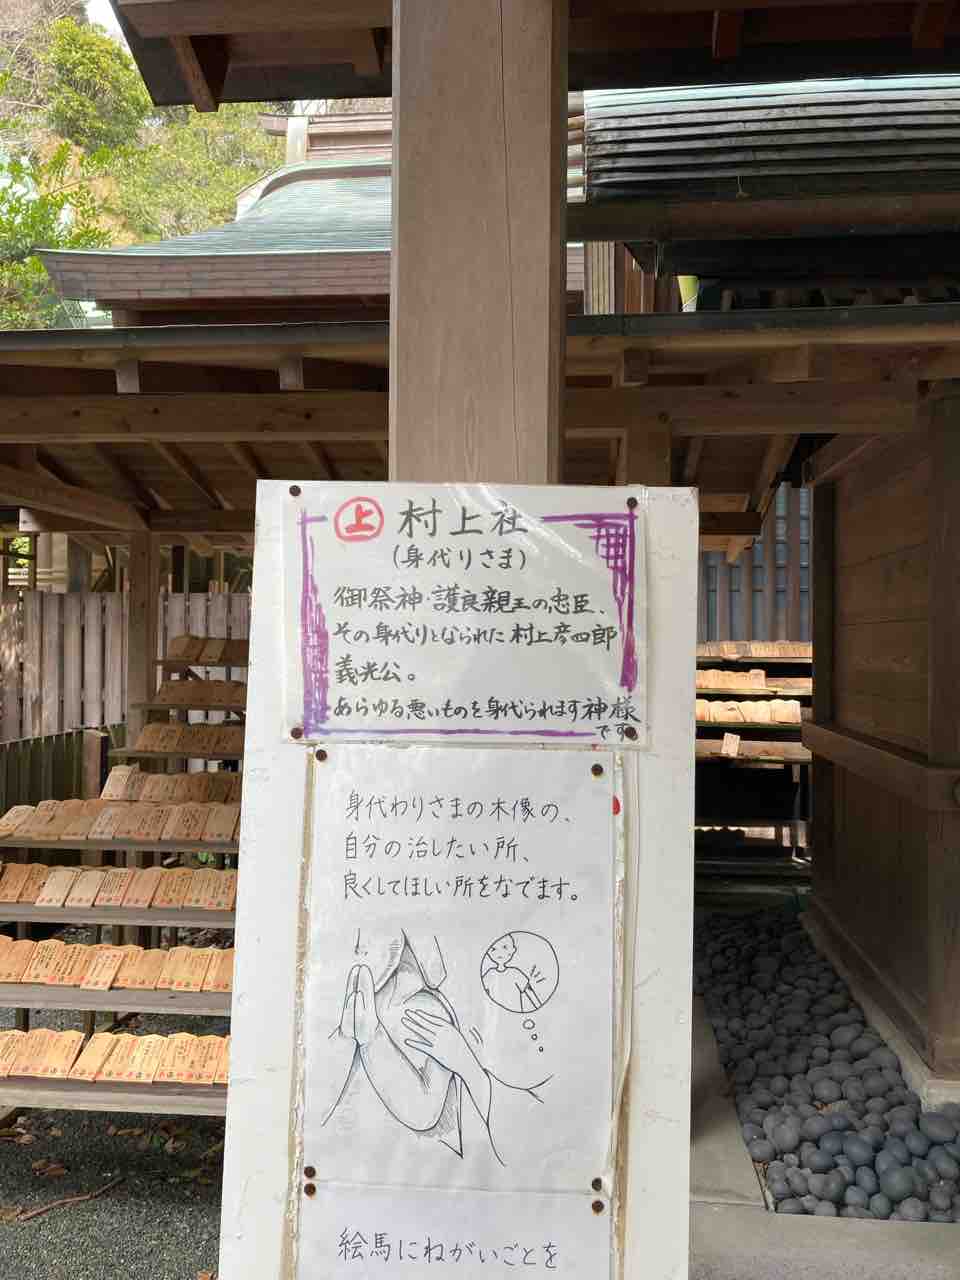 上 村上社
(身代りさま)
御祭神・護良親王の忠臣、
その身代りとなられた村上彦四郎
義光公。
あらゆる悪いものを身代られます神様
です
身代わりさまの木像の、
自分の治したい所、
良くしてほしい所をなでます。
絵馬にねがいごとを